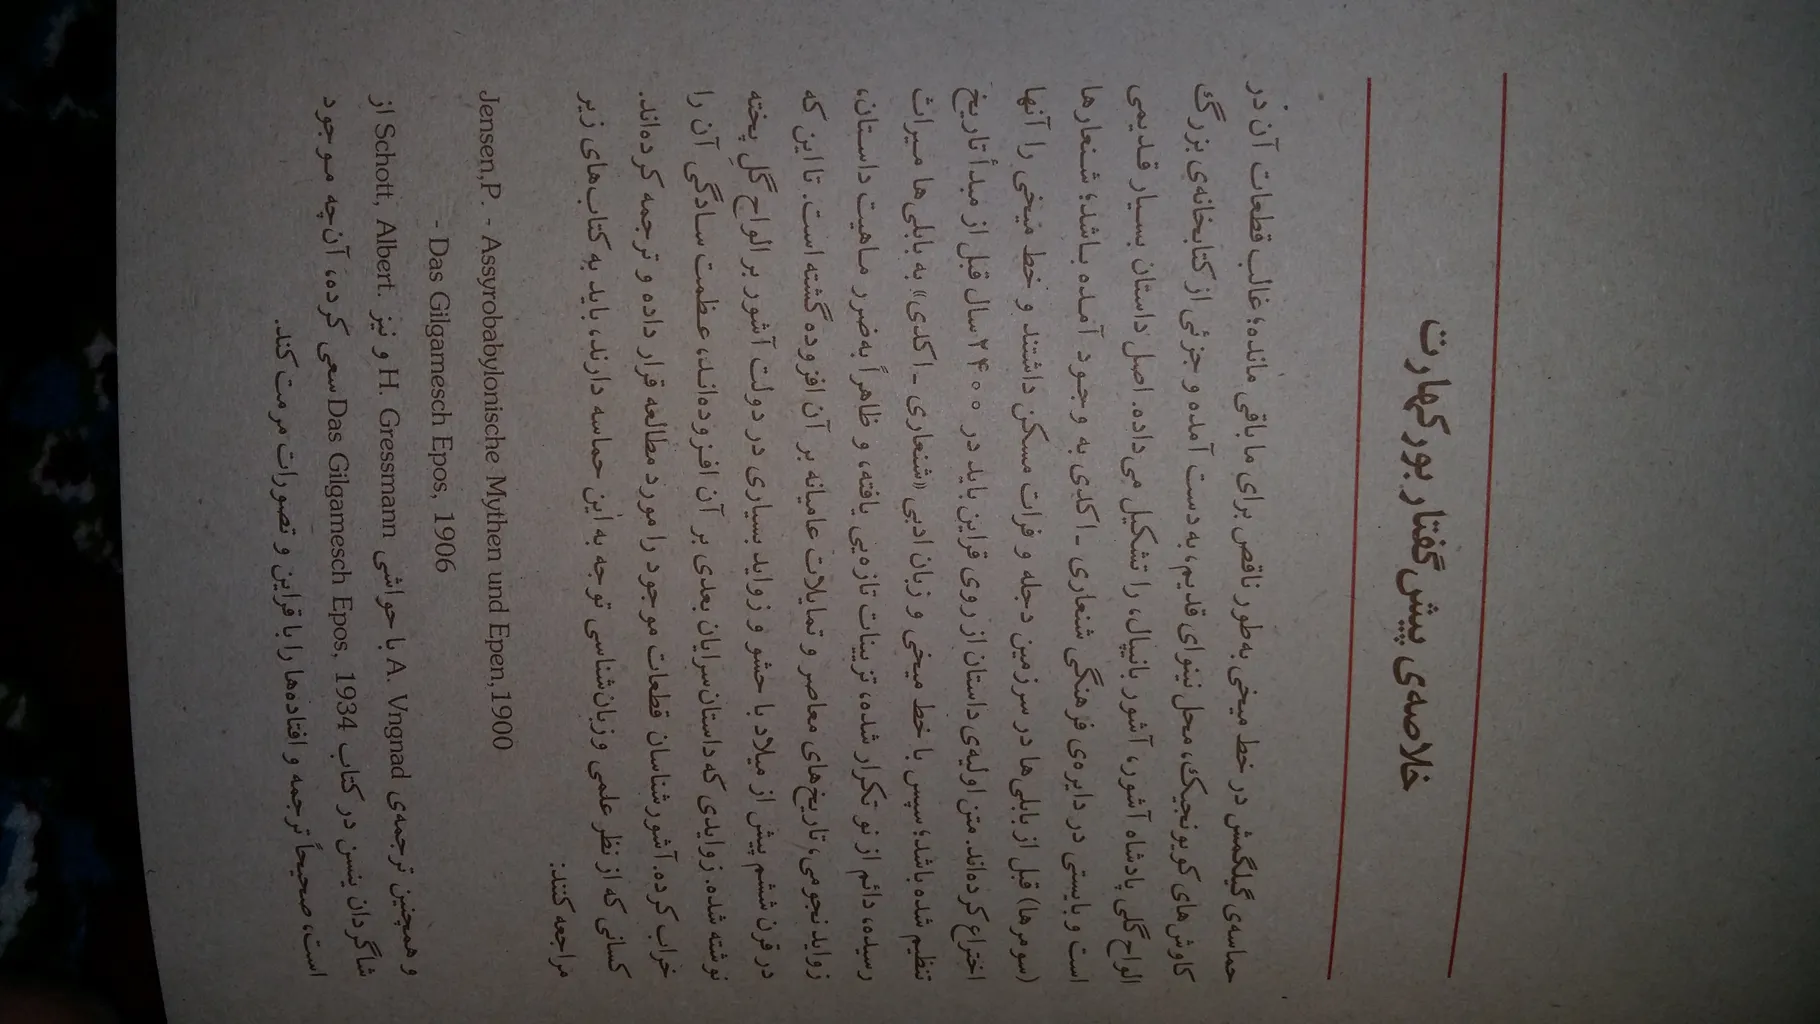 خلاصه‌ی پیش‌گفتار بورکهارت
حماسه‌ی گیلگمش در خط میخی به‌طور ناقص برای ما باقی مانده؛ غالب قطعات آن در
کاوش‌های کویونجیک، محل نینوای قدیم، به‌دست آمده و جزئی از کتابخانه‌ی بزرگ
الواح گلی پادشاه آشور، آشور بانیپال، را تشکیل می‌داده. اصل داستان بسیار قدیمی
است و بایستی در دایره‌ی فرهنگی شنعاری ـ اکدی به وجود آمده باشد؛ شنعارها
(سومرها) قبل از بابلی‌ها در سرزمین دجله و فرات مسکن داشتند و خط میخی را آنها
اختراع کرده‌اند. متن اولیه‌ی داستان از روی قراین باید در ۲۴۰۰ سال قبل از مبدأ تاریخ
تنظیم شده باشد؛ سپس با خط میخی و زبان ادبی «شنعاری ـ اکدی» به بابلی‌ها میراث
رسیده، دائم از نو تکرار شده، تزیینات تازه‌یی یافته، و ظاهراً به‌ضرر ماهیت داستان،
زواید نجومی، تاریخ‌های معاصر و تمایلات عامیانه بر آن افزوده گشته است. تا این که
در قرن ششم پیش از میلاد با حشو و زواید بسیاری در دولت آشور بر الواح گلِ پخته
نوشته شده. زوایدی که داستان‌سرایان بعدی بر آن افزوده‌اند، عظمت سادگی آن را
خراب کرده. آشورشناسان قطعات موجود را مورد مطالعه قرار داده و ترجمه کرده‌اند.
کسانی که از نظر علمی و زبان‌شناسی توجه به این حماسه دارند، باید به کتاب‌های زیر
مراجعه کنند:
Jensen,P. - Assyrobabylonische Mythen und Epen,1900
- Das Gilgamesch Epos, 1906
و همچنین ترجمه‌ی A. Vngnad با حواشی H. Gressmann و نیز Schott, Albert. از
شاگردان ینسن در کتاب Das Gilgamesch Epos, 1934 سعی کرده، آن‌چه موجود
است، صحیحاً ترجمه و افتاده‌ها را با قراین و تصورات مرمت کند.